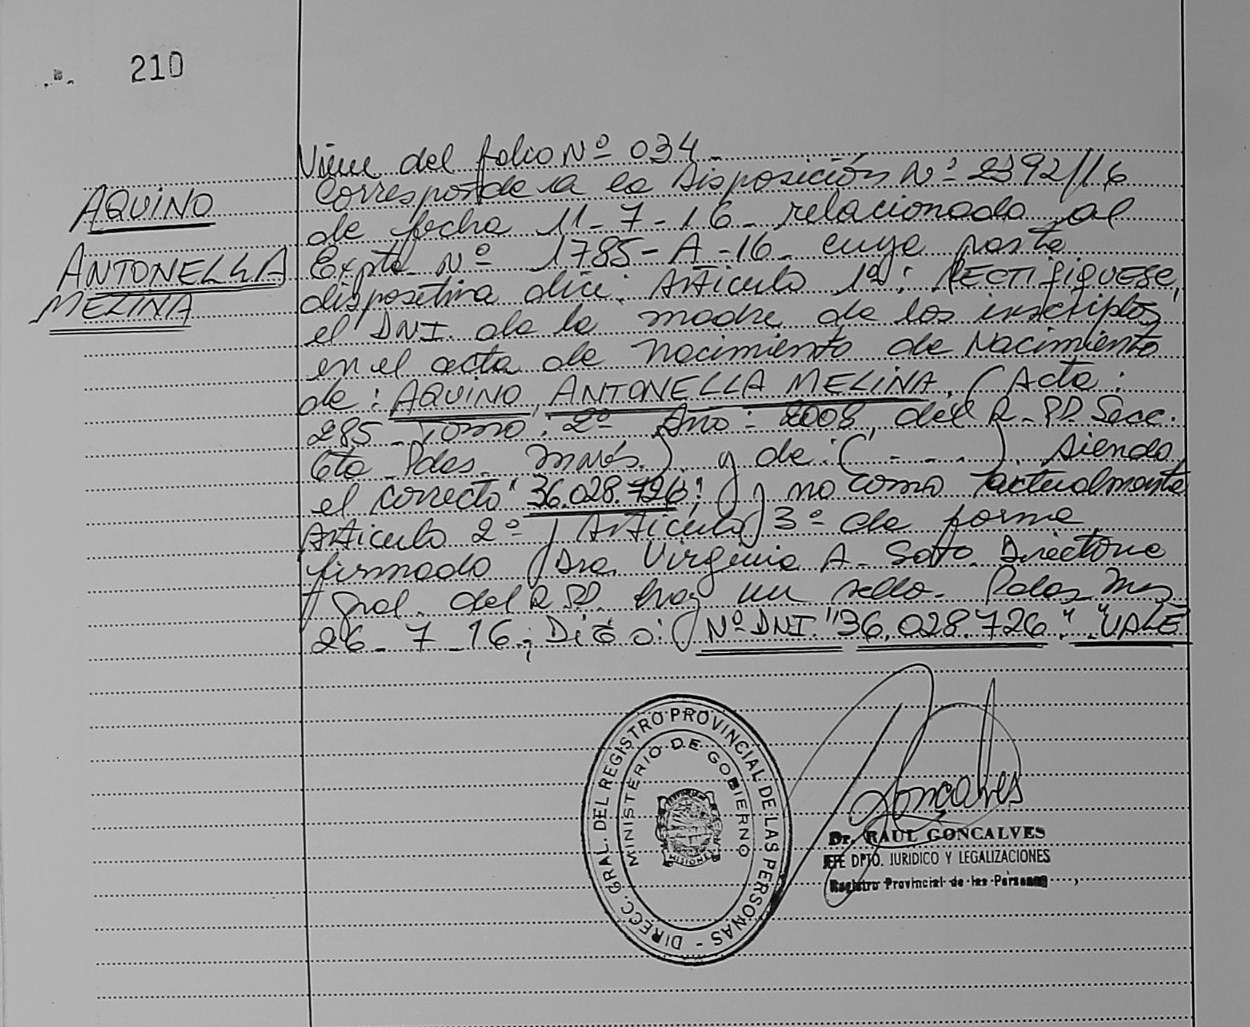 210
AQUINO
ANTONELLA
MELINA
Viene del folio Nº 034
Corresponde a la Disposición Nº 2392/16
de fecha 11-7-16 relacionado al
Expte Nº 1785-A-16 cuya parte
dispositiva dice: Artículo 1º: RECTIFIQUESE,
el DNI de la madre de los inscriptos,
en el acta de nacimiento de Nacimiento
de: AQUINO ANTONELLA MELINA, (Acta:
285 - Tomo: 2º Año: 2008, del R.P.P. Secc.
6ta Pdas. Mnes.) y de: (- - -). siendo
el correcto "36.028.726" y no como actualmente
Artículo 2º y Artículo 3º de forma
firmado Dra. Virginia A. Soto. Directora
Gral. del R.P.P. hay un sello. Pdas Mnes
26-7-16; Dice: Nº DNI "36.028.726" "VALE
DIRECC. GRAL. DEL REGISTRO PROVINCIAL DE LAS PERSONAS -
MINISTERIO DE GOBIERNO
MISIONES
Goncalves
Dr. RAUL GONCALVES
JEFE DPTO. JURIDICO Y LEGALIZACIONES
Registro Provincial de las Personas